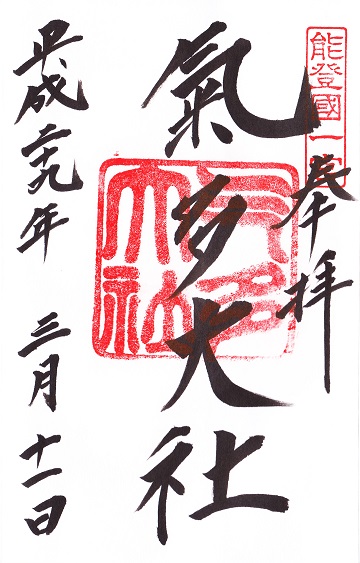 能登國一宮
奉拝
氣多大社
氣多大社
平成二十九年 三月十一日